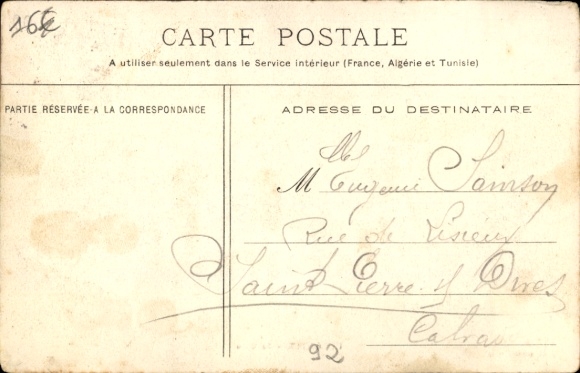 166
CARTE POSTALE
A utiliser seulement dans le Service intérieur (France, Algérie et Tunisie)
PARTIE RÉSERVÉE A LA CORRESPONDANCE
ADRESSE DU DESTINATAIRE
Mlle
M Eugenie Samson
Rue de Lisieux
Saint Pierre s/ Dives
Calvados
92